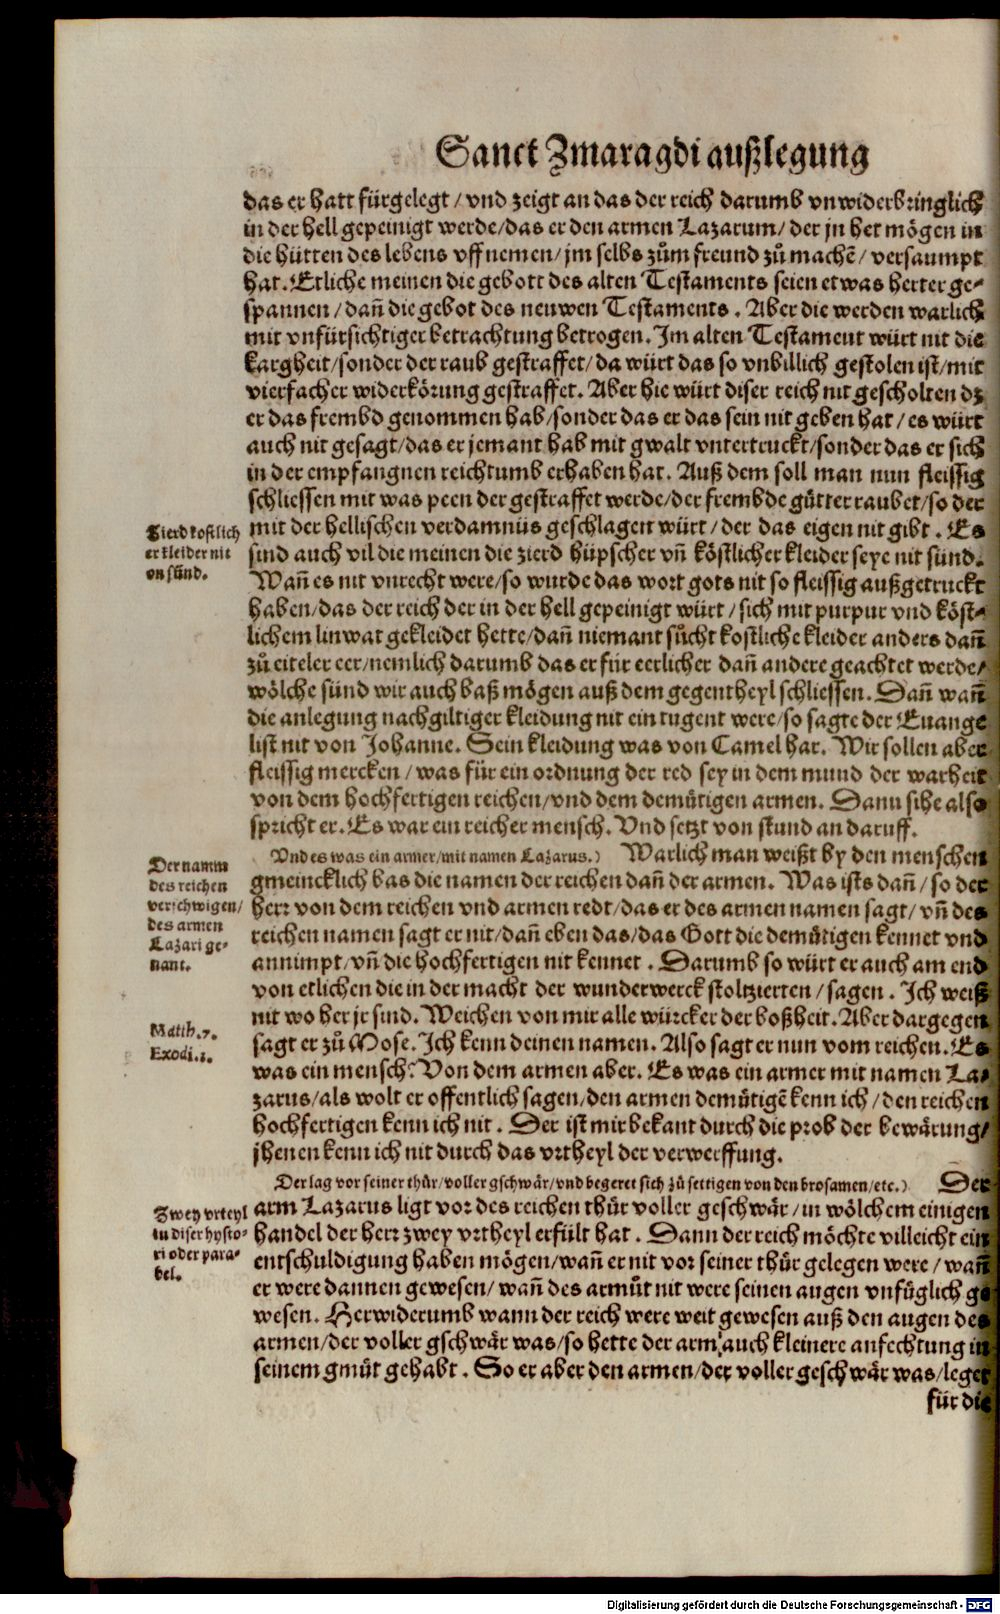 Sanct Zmaragdi außlegung
das er hatt fürgelegt / vnd zeigt an das der reich darumb vnwiderbringlich
in der hell gepeinigt werde/das er den armen Lazarum/ der jn het mögen in
die hütten des lebens vff nemen/ jm selbs zům freund zů machē/ versaumpt
hat. Etliche meinen die gebott des alten Testaments seien etwas herter ge-
spannen / dañ die gebot des neuwen Testaments . Aber die werden warlich
mit vnfürsichtiger betrachtung betrogen. Im alten Testament würt nit die
kargheit/sonder der raub gestraffet/ da würt das so vnbillich gestolen ist/mit
vierfacher widerkörung gestraffet. Aber hie würt diser reich nit gescholten dz
er das frembd genommen hab/sonder das er das sein nit geben hat / es würt
auch nit gesagt/das er jemant hab mit gwalt vntertruckt/sonder das er sich
in der empfangnen reichtumb erhaben hat. Auß dem soll man nun fleissig
schliessen mit was peen der gestraffet werde/der frembde gütter raubet/so der
Zierd kostlich
er kleider nit
on sünd.
mit der hellischen verdamnüs geschlagen würt / der das eigen nit gibt . Es
sind auch vil die meinen die zierd hüpscher vñ köstlicher kleider seye nit sünd.
Wañ es nit vnrecht were/so wurde das wort gots nit so fleissig außgetruckt
haben/das der reich der in der hell gepeinigt würt / sich mit purpur vnd köst-
lichem linwat gekleidet hette/dañ niemant sůcht kostliche kleider anders dañ
zů eiteler eer/nemlich darumb das er für eerlicher dañ andere geachtet werde/
wölche sünd wir auch baß mögen auß dem gegentheyl schliessen. Dañ wañ
die anlegung nachgiltiger kleidung nit ein tugent were/so sagte der Euange
list nit von Johanne. Sein kleidung was von Camel har. Wir sollen aber
fleissig mercken / was für ein ordnung der red sey in dem mund der warheit
von dem hochfertigen reichen/vnd dem demütigen armen. Dann sihe also
spricht er. Es war ein reicher mensch. Vnd setzt von stund an daruff.
Der namm
des reichen
verschwigen/
des armen
Lazari ge-
nant.
Vnd es was ein armer/mit namen Lazarus.) Warlich man weißt by den menschen
gmeincklich bas die namen der reichen dañ der armen. Was ists dañ / so der
herr von dem reichen vnd armen redt/das er des armen namen sagt/ vñ des
reichen namen sagt er nit/dañ eben das/das Gott die demütigen kennet vnd
annimpt/vñ die hochfertigen nit kennet . Darumb so würt er auch am end
von etlichen die in der macht der wunderwerck stoltzierten / sagen . Ich weiß
Matth.7.
Exodi.1.
nit wo her jr sind. Weichen von mir alle würcker der boßheit. Aber dargegen
sagt er zů Mose. Ich kenn deinen namen. Also sagt er nun vom reichen. Es
was ein mensch. Von dem armen aber. Es was ein armer mit namen La-
zarus/als wolt er offentlich sagen/den armen demütigē kenn ich / den reichen
hochfertigen kenn ich nit . Der ist mir bekant durch die prob der bewärung/
jhenen kenn ich nit durch das vrtheyl der verwerffung.
Der lag vor seiner thür/voller gschwär/vnd begeret sich zů settigen von den brosamen/etc.) Der
Zwey vrteyl
in diser hysto-
ri oder para-
bel.
arm Lazarus ligt vor des reichen thür voller geschwär / in wölchem einigen
handel der herr zwey vrtheyl erfült hat . Dann der reich möchte villeicht ein
entschuldigung haben mögen/wañ er nit vor seiner thür gelegen were / wañ
er were dannen gewesen/ wañ des armůt nit were seinen augen vnfüglich ge
wesen. Herwiderumb wann der reich were weit gewesen auß den augen des
armen/der voller gschwär was/so hette der arm auch kleinere anfechtung in
seinem gmüt gehabt . So er aber den armen/der voller geschwär was/leget
für die
Digitalisierung gefördert durch die Deutsche Forschungsgemeinschaft - DFG